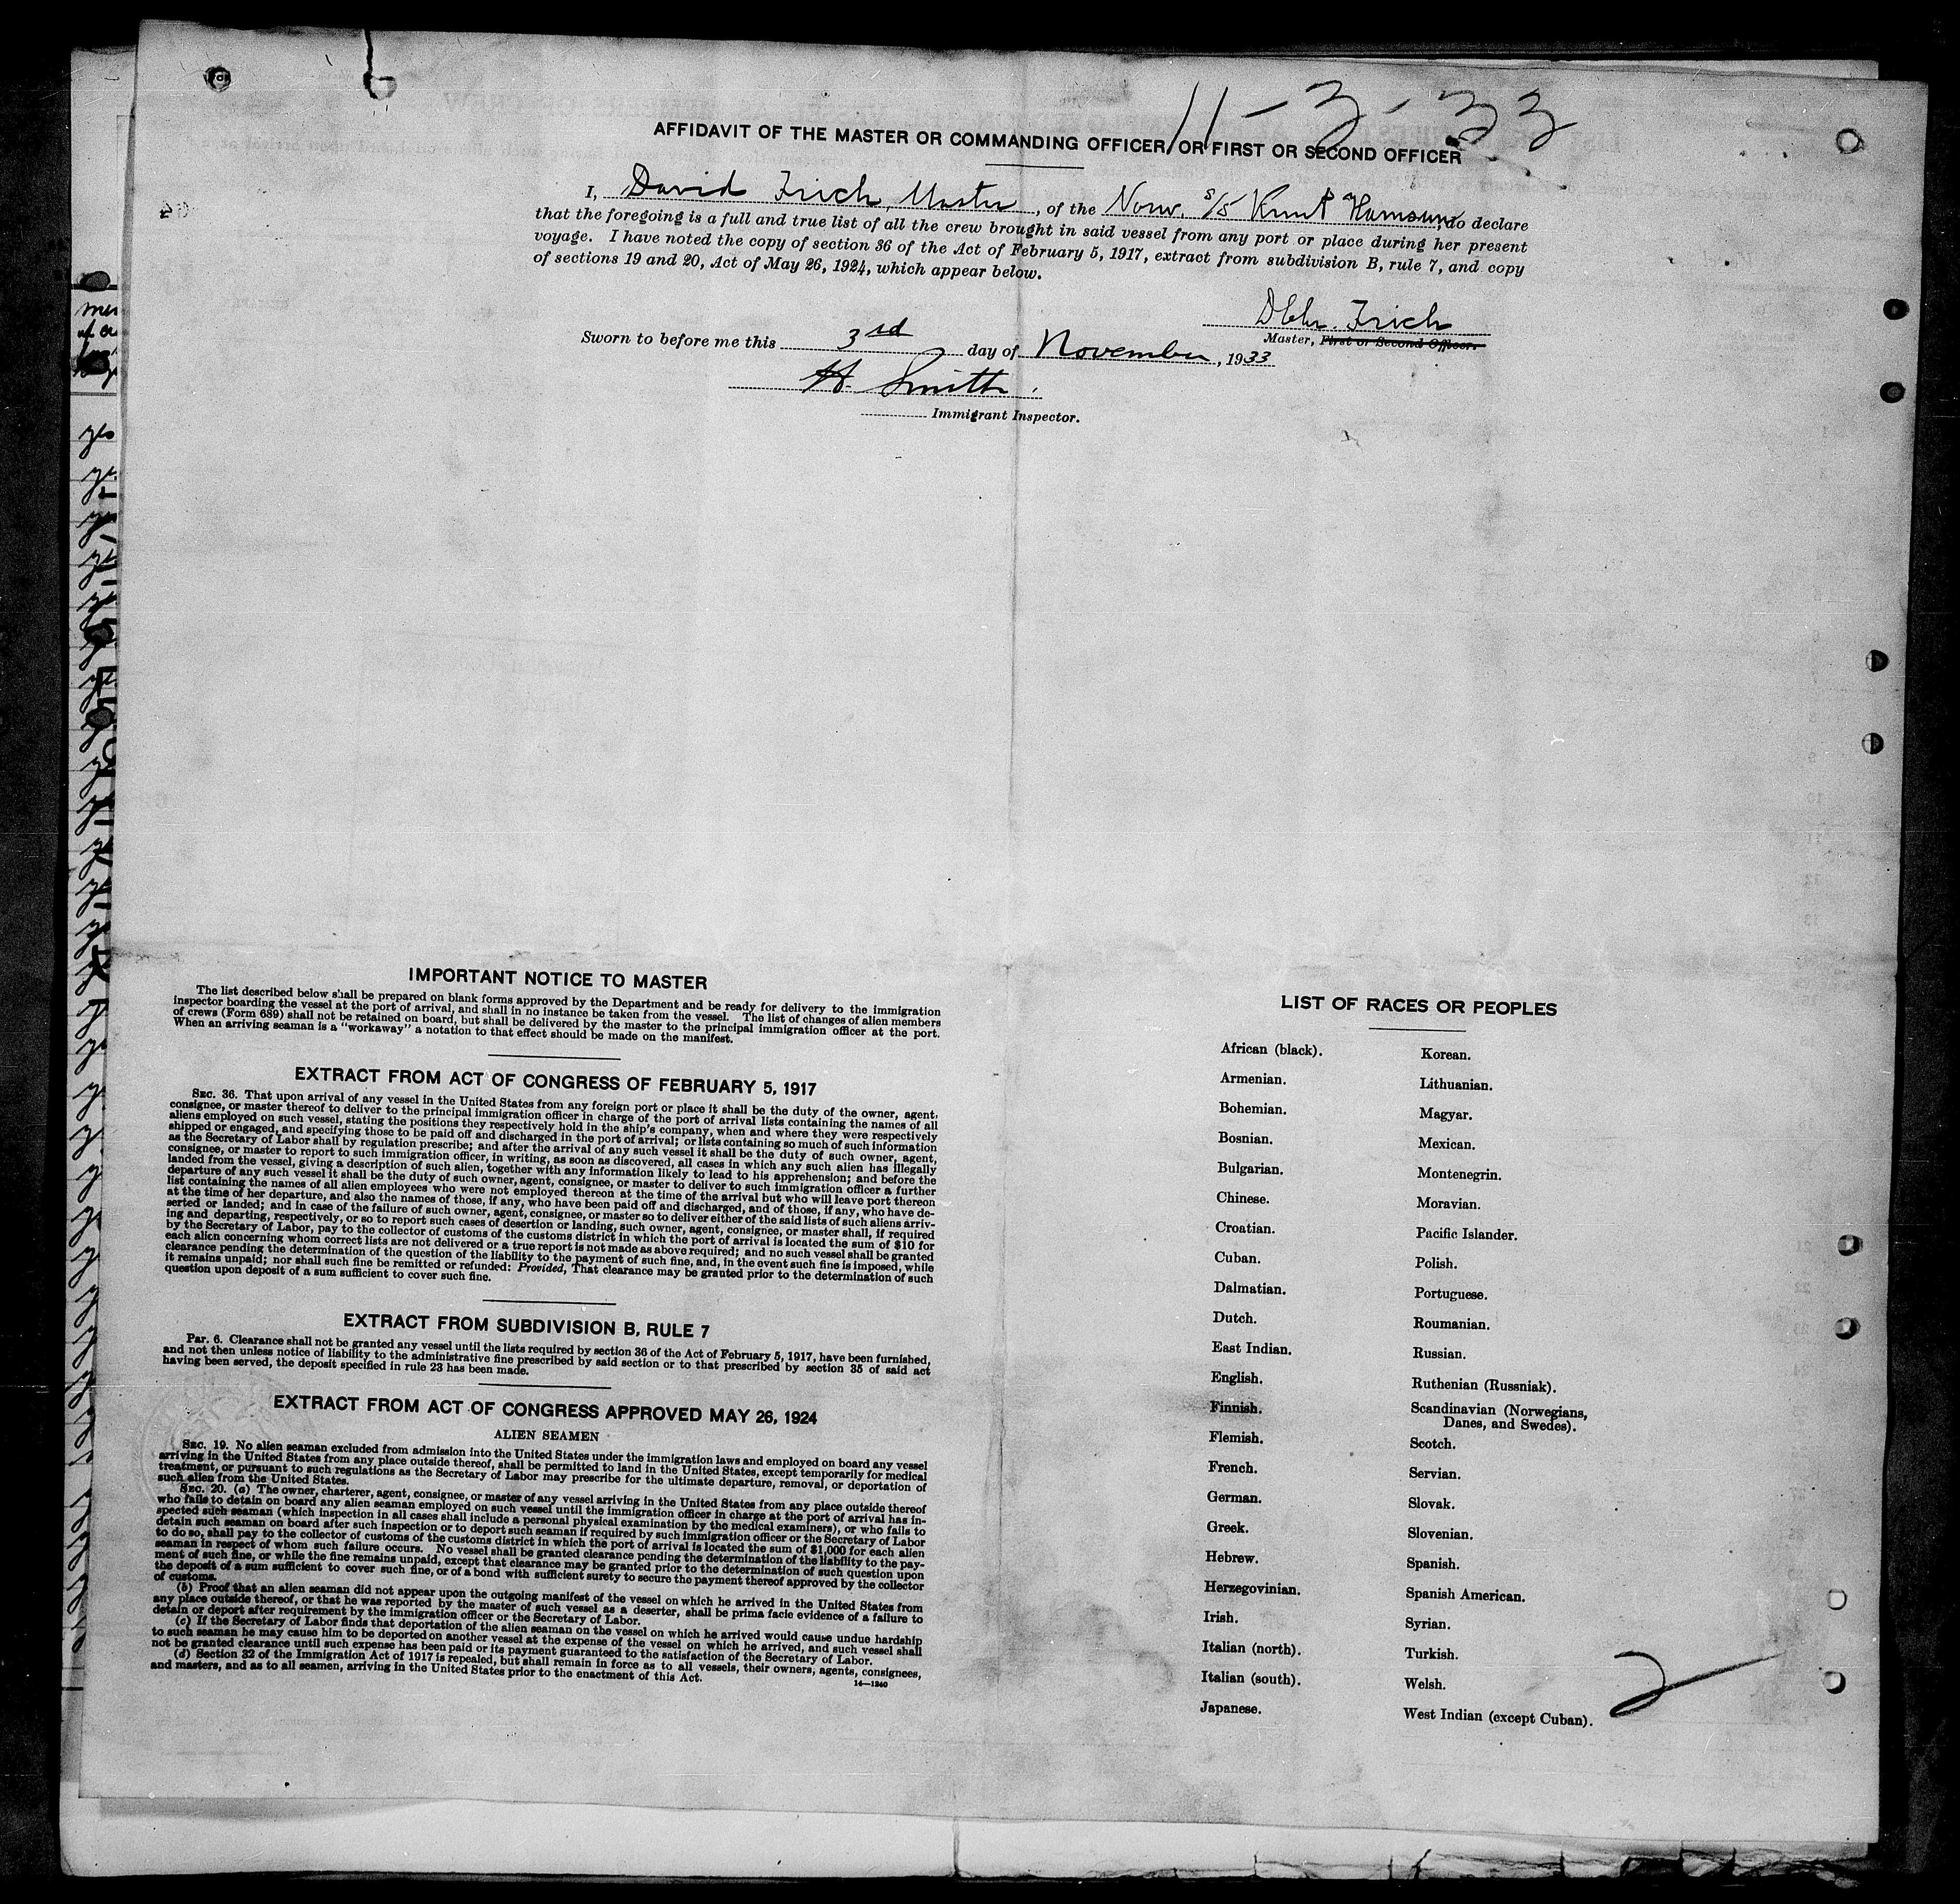 11-3-33
AFFIDAVIT OF THE MASTER OR COMMANDING OFFICER, OR FIRST OR SECOND OFFICER
I, David Irich, Master, of the Norw. s/s Knut Hamsun, do declare
that the foregoing is a full and true list of all the crew brought in said vessel from any port or place during her present
voyage. I have noted the copy of section 36 of the Act of February 5, 1917, extract from subdivision B, rule 7, and copy
of sections 19 and 20, Act of May 26, 1924, which appear below.
Irich
Master, First or Second Officer.
Sworn to before me this 3rd day of November, 1933
H. Smith.
Immigrant Inspector.
IMPORTANT NOTICE TO MASTER
The list described below shall be prepared on blank forms approved by the Department and be ready for delivery to the immigration
inspector boarding the vessel at the port of arrival, and shall in no instance be taken from the vessel. The list of changes of alien members
of crews (Form 689) shall not be retained on board, but shall be delivered by the master to the principal immigration officer at the port.
When an arriving seaman is a "workaway" a notation to that effect should be made on the manifest.
EXTRACT FROM ACT OF CONGRESS OF FEBRUARY 5, 1917
SEC. 36. That upon arrival of any vessel in the United States from any foreign port or place it shall be the duty of the owner, agent,
consignee, or master thereof to deliver to the principal immigration officer in charge of the port of arrival lists containing the names of all
aliens employed on such vessel, stating the positions they respectively hold in the ship's company, when and where they were respectively
shipped or engaged, and specifying those to be paid off and discharged in the port of arrival; or lists containing so much of such information
as the Secretary of Labor shall by regulation prescribe; and after the arrival of any such vessel it shall be the duty of such owner, agent,
consignee, or master to report to such immigration officer, in writing, as soon as discovered, all cases in which any such alien has illegally
landed from the vessel, giving a description of such alien, together with any information likely to lead to his apprehension; and before the
departure of any such vessel it shall be the duty of such owner, agent, consignee, or master to deliver to such immigration officer a further
list containing the names of all alien employees who were not employed thereon at the time of the arrival but who will leave port thereon
at the time of her departure, and also the names of those, if any, who have been paid off and discharged, and of those, if any, who have de-
serted or landed; and in case of the failure of such owner, agent, consignee, or master so to deliver either of the said lists of such aliens arriv-
ing and departing, respectively, or so to report such cases of desertion or landing, such owner, agent, consignee, or master shall, if required
by the Secretary of Labor, pay to the collector of customs of the customs district in which the port of arrival is located the sum of $10 for
each alien concerning whom correct lists are not delivered or a true report is not made as above required; and no such vessel shall be granted
clearance pending the determination of the question of the liability to the payment of such fine, and, in the event such fine is imposed, while
it remains unpaid; nor shall such fine be remitted or refunded: Provided, That clearance may be granted prior to the determination of such
question upon deposit of a sum sufficient to cover such fine.
EXTRACT FROM SUBDIVISION B, RULE 7
Par. 6. Clearance shall not be granted any vessel until the lists required by section 36 of the Act of February 5, 1917, have been furnished,
and not then unless notice of liability to the administrative fine prescribed by said section or to that prescribed by section 35 of said act
having been served, the deposit specified in rule 23 has been made.
EXTRACT FROM ACT OF CONGRESS APPROVED MAY 26, 1924
ALIEN SEAMEN
SEC. 19. No alien seaman excluded from admission into the United States under the immigration laws and employed on board any vessel
arriving in the United States from any place outside thereof, shall be permitted to land in the United States, except temporarily for medical
treatment, or pursuant to such regulations as the Secretary of Labor may prescribe for the ultimate departure, removal, or deportation of
such alien from the United States.
SEC. 20. (a) The owner, charterer, agent, consignee, or master of any vessel arriving in the United States from any place outside thereof
who fails to detain on board any alien seaman employed on such vessel until the immigration officer in charge at the port of arrival has in-
spected such seaman (which inspection in all cases shall include a personal physical examination by the medical examiners), or who fails to
detain such seaman on board after such inspection or to deport such seaman if required by such immigration officer or the Secretary of Labor
to do so, shall pay to the collector of customs of the customs district in which the port of arrival is located the sum of $1,000 for each alien
seaman in respect of whom such failure occurs. No vessel shall be granted clearance pending the determination of the liability to the pay-
ment of such fine, or while the fine remains unpaid, except that clearance may be granted prior to the determination of such question upon
the deposit of a sum sufficient to cover such fine, or of a bond with sufficient surety to secure the payment thereof approved by the collector
of customs.
(b) Proof that an alien seaman did not appear upon the outgoing manifest of the vessel on which he arrived in the United States from
any place outside thereof, or that he was reported by the master of such vessel as a deserter, shall be prima facie evidence of a failure to
detain or deport after requirement by the immigration officer or the Secretary of Labor.
(c) If the Secretary of Labor finds that deportation of the alien seaman on the vessel on which he arrived would cause undue hardship
to such seaman he may cause him to be deported on another vessel at the expense of the vessel on which he arrived, and such vessel shall
not be granted clearance until such expense has been paid or its payment guaranteed to the satisfaction of the Secretary of Labor.
(d) Section 32 of the Immigration Act of 1917 is repealed, but shall remain in force as to all vessels, their owners, agents, consignees,
and masters, and as to all seamen, arriving in the United States prior to the enactment of this Act.
14—1240
LIST OF RACES OR PEOPLES
African (black).
Armenian.
Bohemian.
Bosnian.
Bulgarian.
Chinese.
Croatian.
Cuban.
Dalmatian.
Dutch.
East Indian.
English.
Finnish.
Flemish.
French.
German.
Greek.
Hebrew.
Herzegovinian.
Irish.
Italian (north).
Italian (south).
Japanese.
Korean.
Lithuanian.
Magyar.
Mexican.
Montenegrin.
Moravian.
Pacific Islander.
Polish.
Portuguese.
Roumanian.
Russian.
Ruthenian (Russniak).
Scandinavian (Norwegians,
Danes, and Swedes).
Scotch.
Servian.
Slovak.
Slovenian.
Spanish.
Spanish American.
Syrian.
Turkish.
Welsh.
West Indian (except Cuban).
2